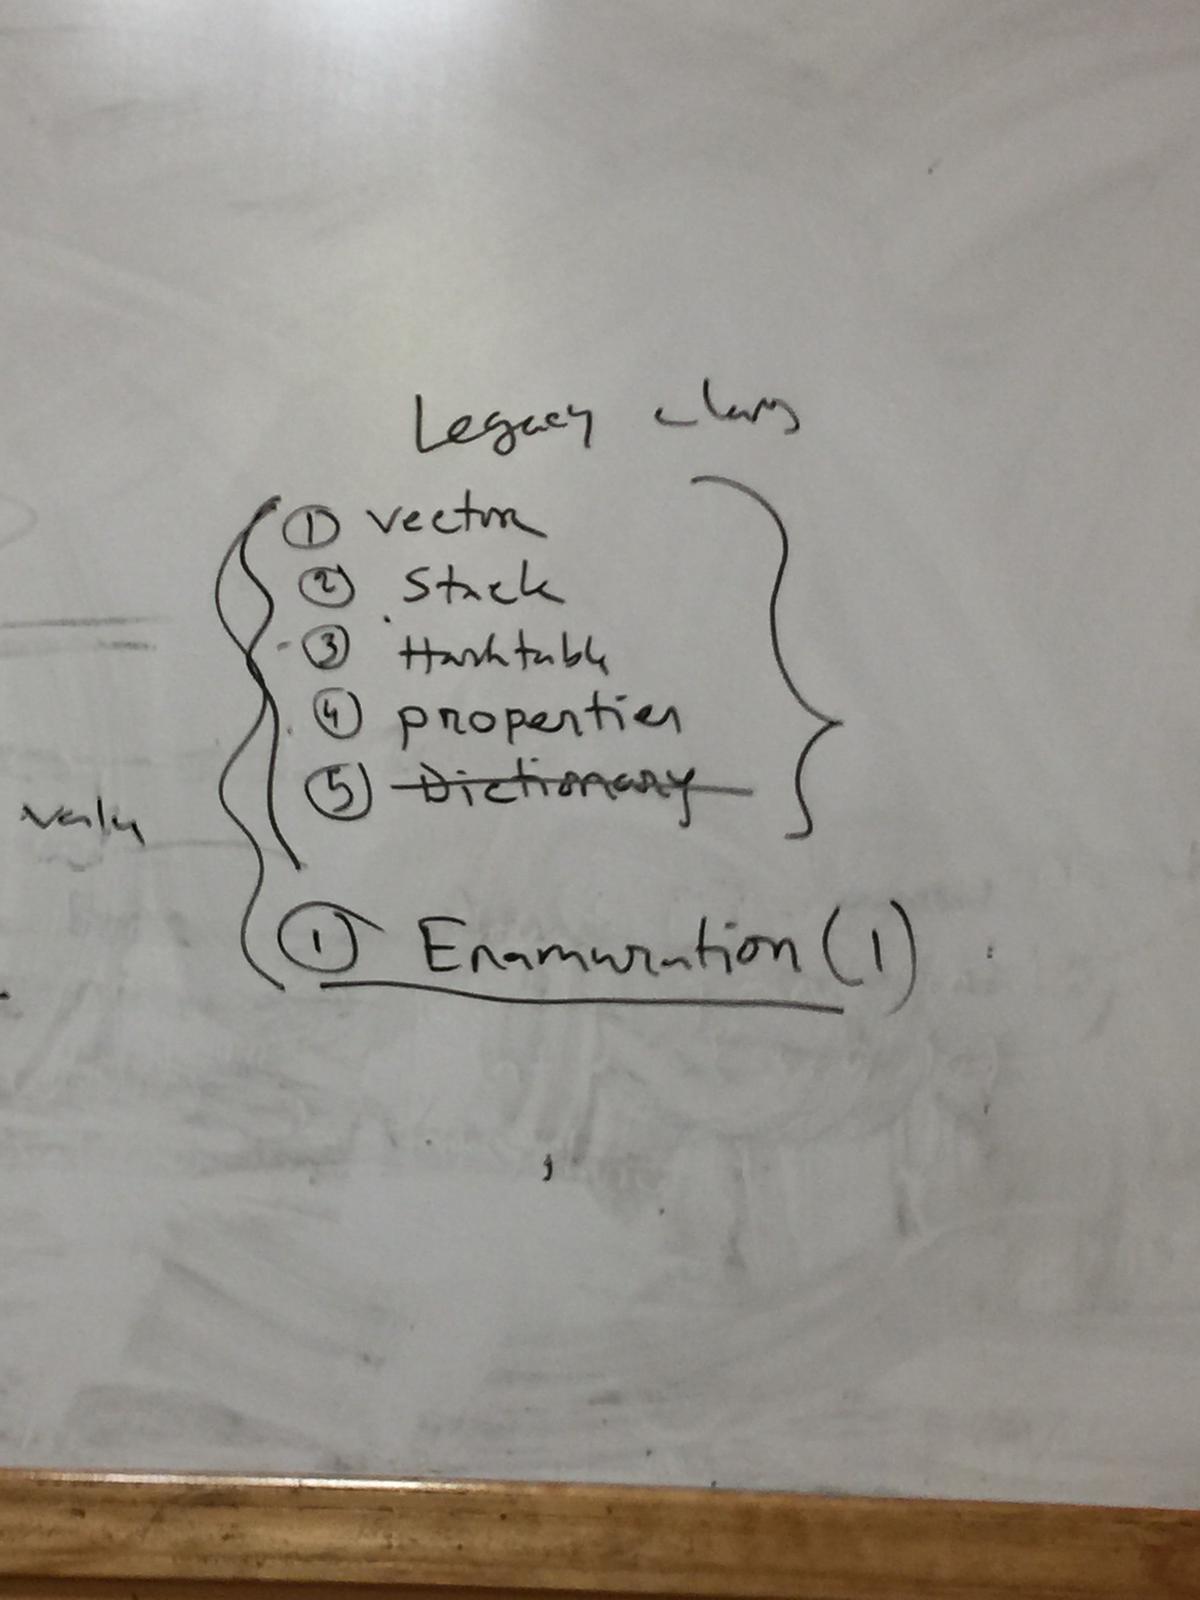 Legacy class
① vector
② Stack
③ Hashtable
④ properties
⑤ Dictionary
① Enamuration (1)